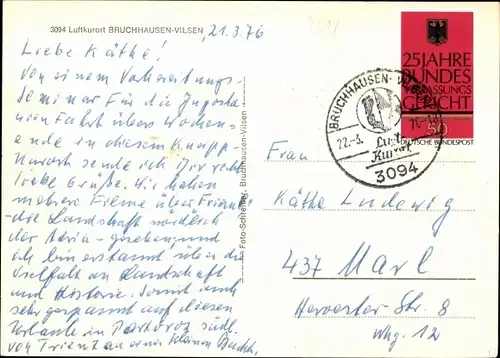 3094 Luftkurort BRUCHHAUSEN-VILSEN
21.3.76
Liebe Käthe!
Von einem Vorbereitungs-
seminar für die Jugosla-
wienfahrt über Wochen-
ende in diesem Kneipp-
Kurort sende ich Dir recht
liebe Grüße. Wir haben
mehrere Filme über
- die Landschaft nördlich
der Adria - gesehen und
ich bin erstaunt über die
Vielfalt an Landschaft
und Historie. Somit auch
sehr gespannt auf diesen
Urlaub in Portoroz südl.
von Triest an einer kleinen Bucht.
Foto-Schreiber, Bruchhausen-Vilsen
25 JAHRE
BUNDES
VERFASSUNGS
GERICHT
50
DEUTSCHE BUNDESPOST
BRUCHHAUSEN-V
22.-3.
Luft
Kurort
3094
Frau
Käthe Ludewig
437 Marl
Hervester Str. 8
Whg. 12